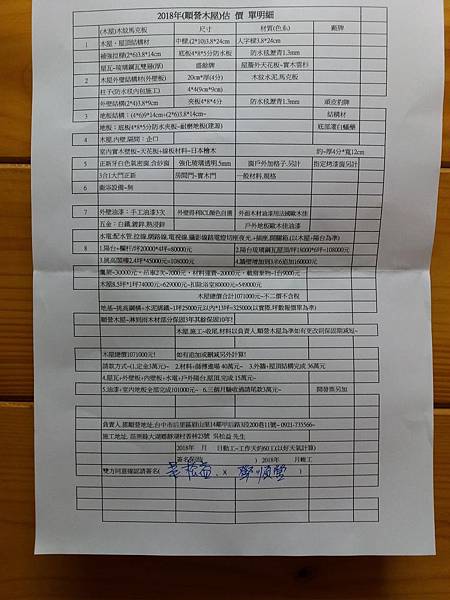 2018年(順營木屋)估 價 單明細
(木屋)木紋馬克板 尺寸 材質(色系) 廠牌
1 木屋、屋頂結構材 中樑,(2*10)3.8*24cm 人字樑3.8*24cm
補強拉樑(2*6)3.8*14cm 底板4*8*5分防水板 防水毯瀝青1.3mm
屋瓦~琉璃鋼瓦雙層(厚) 盛餘牌 屋簷外天花板~實木雲杉
2 木屋外壁結構材(外壁板) 20cm*厚(4分) 木紋水泥,馬克板
柱子(防水毯內包施工) 4*4(9cm*9cm)
外壁結構(2*4)3.8*9cm 夾板4*8*4分 防水毯瀝青1.3mm 頑皮豹牌
3 地板結構:(4*6)9*14cm+(2*6)3.8*14cm~ 結構材
地板:底板4*8*5分防水夾板~超耐磨地板(建源) 底屋灌白蟻藥
4 木屋,內壁,隔間:企口
室內實木壁板~天花板+線板材料~日本檜木 約~厚4分*寬12cm
5 正新牙白色氣密窗,含紗窗 強化玻璃透明,5mm 窗戶外加格子,另計 指定烤漆窗另計
3合1大門正新 房間門~實木門 一般材料,規格
6 衛浴設備~無
7 外壁油漆:手工油漆3次 外壁得利ICI,顏色自選 外面木材油漆用法國歐木佳
五金:白鐵,鍍鋅,熱浸鋅 戶外地板歐木佳油漆
水電:配水管,拉線,網路線,電視線,攝影線路電燈切座夜光,+插座,開關箱.(以木屋+陽台為準)
8 1.陽台+欄杆/坪20000*4坪=80000元 2.陽台玻璃鋼瓦屋頂/坪18000*6坪=108000元
3.挑高閣樓2.4坪*45000元=108000元 4.牆壁增加到3米6追加160000元
鷹架~30000元 + 吊車2次~7000元,材料運費~20000元,載廢棄物~1台9000元
木屋8.5坪*1坪74000元=629000元~扣除浴室80000元=549000元
木屋總價合計1071000元~不二價不含稅
地基~挑高鋼構+水泥磚牆~1坪25000元以內*13坪=325000(以實際,坪數報價單為準)
順營木屋~淋到雨木材部分保固3年其餘保固10年!
木屋,施工~收尾,材料以負責人,順營木屋為準如有更改則保固期減短~
木屋總價1071000元! 如有追加或刪減另外計算!
請款方式~(1.定金3萬元)~ 2.材料+師傅進場 40萬元~ 3.外牆+屋頂結構完成 36萬元
4.屋瓦+外壁板+內壁板+水電+戶外陽台,屋頂,完成 15萬元~
5.油漆+室內地板全部完成101000元~ 6.三個月驗收過請尾款3萬元~ 開發票另加
負責人,鄧順營地址,台中市后里區
2018年 月 日動工~工作天約60工(以好天氣計算)
2018年 月竣工
雙方同意確認請簽名( 吳松益 、X 鄧順營 )